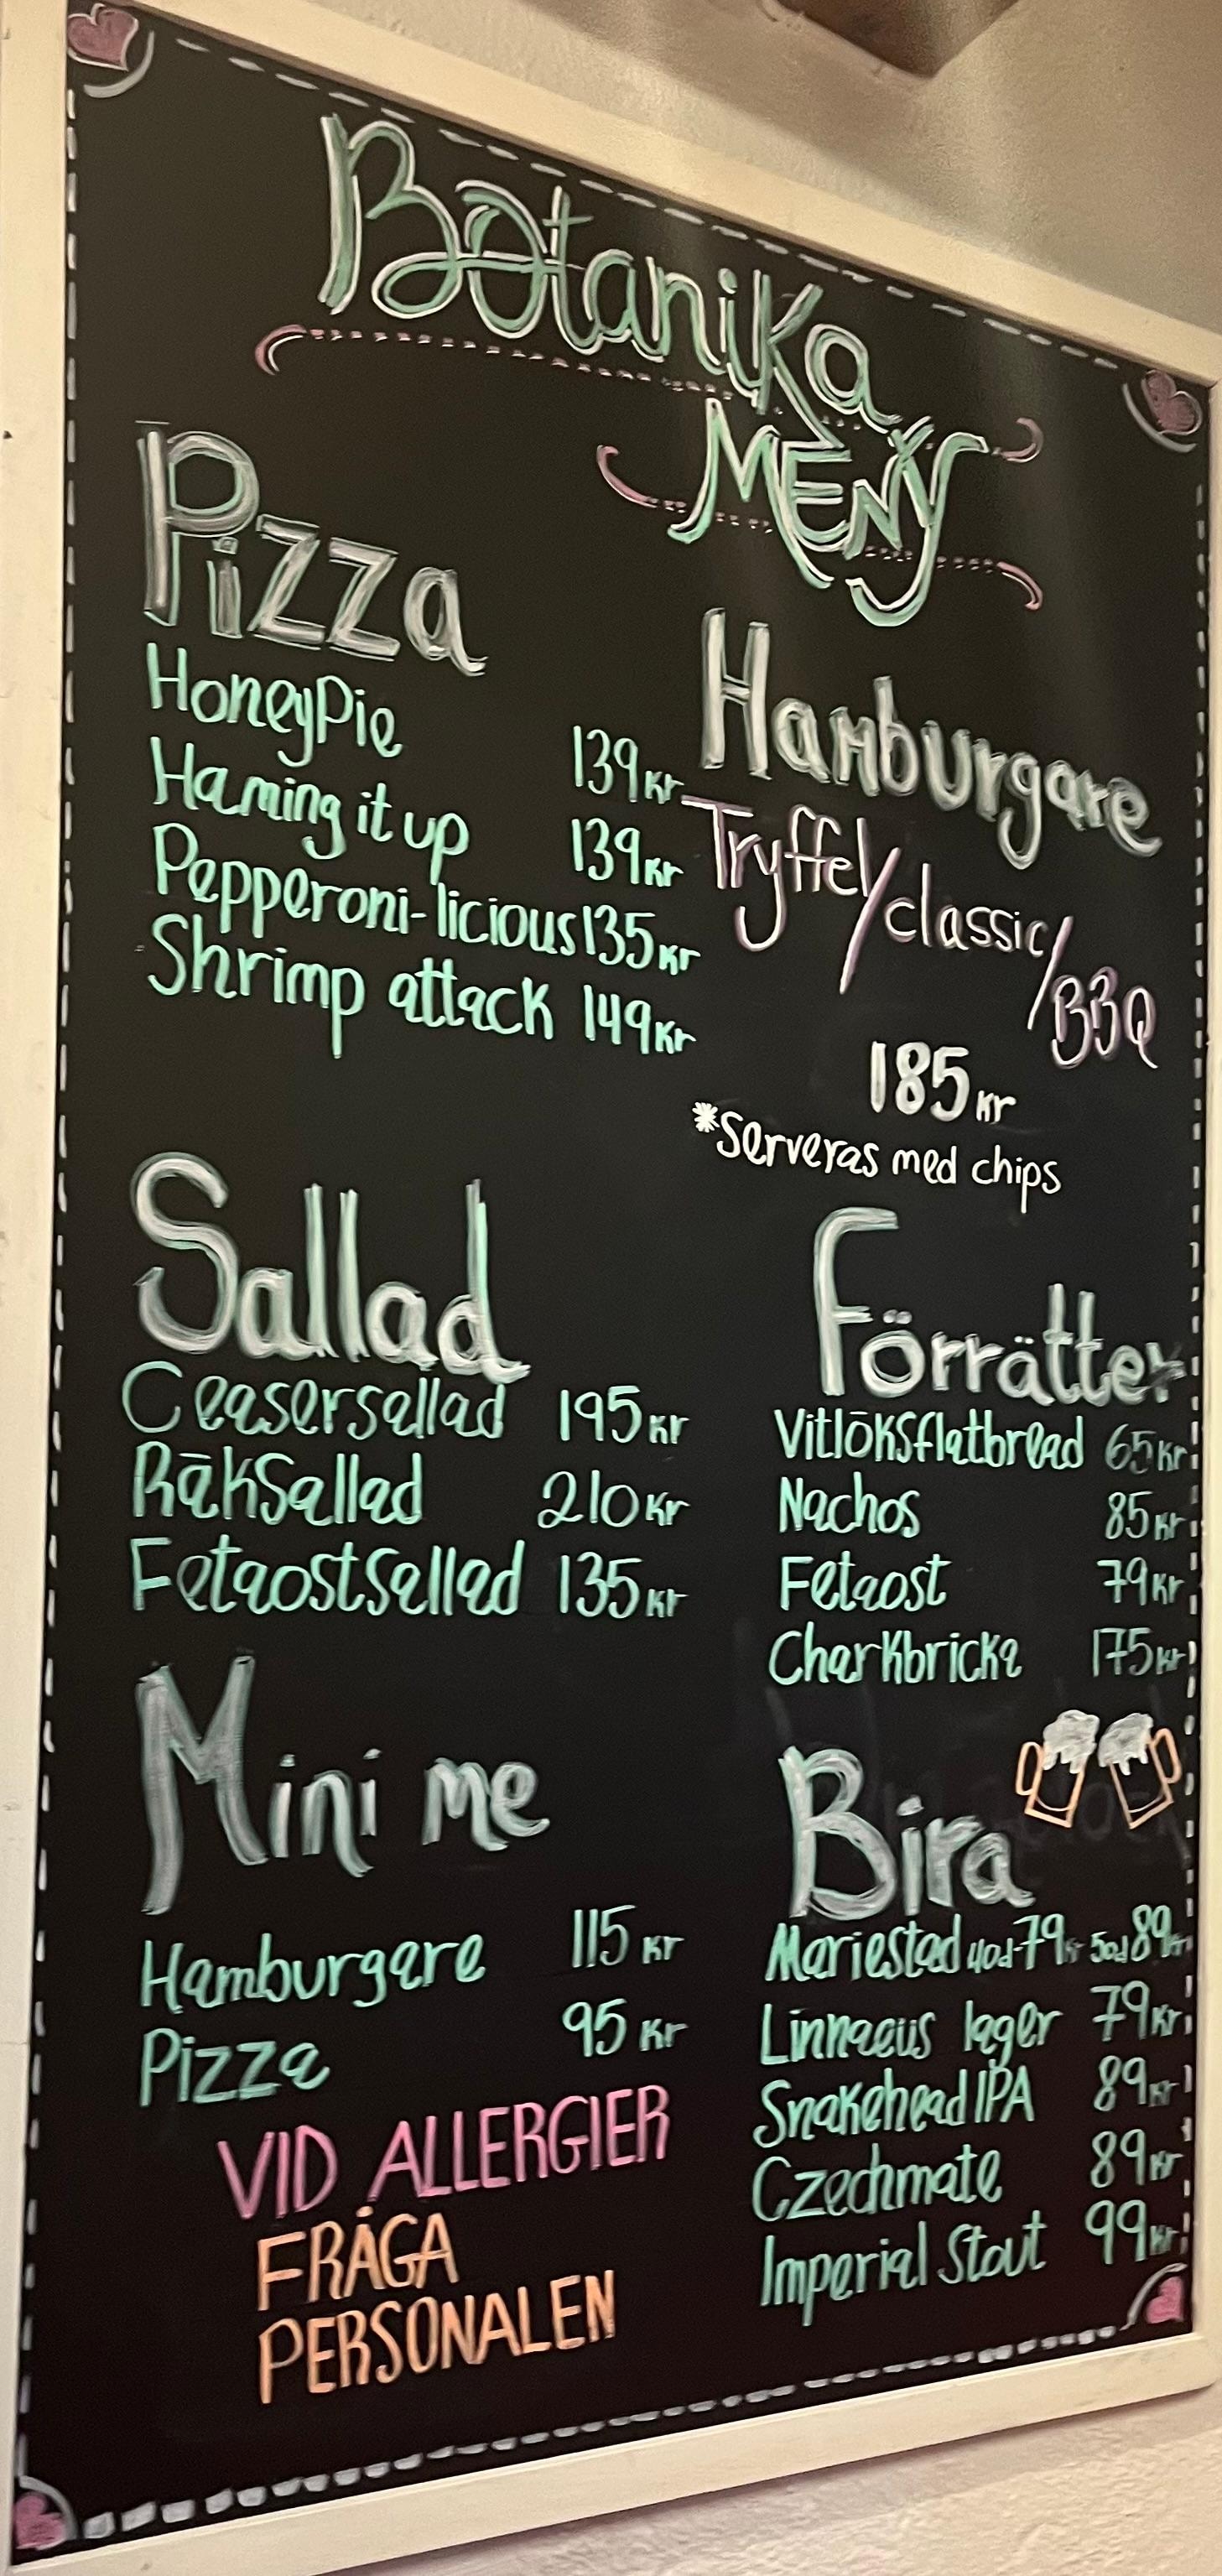 Botanika
MENY
Pizza
HoneyPie 139kr
Haming it up 139kr
Pepperoni-licious 135kr
Shrimp attack 149kr
Hamburgare
Tryffel/classic/BBQ
185kr
*serveras med chips
Sallad
Ceasersallad 195kr
Räksallad 210kr
Fetaostsallad 135kr
Förrätter
Vitlöksflatbread 65kr
Nachos 85kr
Fetaost 79kr
Charkbricka 175kr
Mini me
Hamburgare 115 kr
Pizza 95 kr
VID ALLERGIER
FRÅGA
PERSONALEN
Bira
Mariestad 40cl-79kr 50cl 89kr
Linnaeus lager 79kr
Snakehead IPA 89kr
Czechmate 89kr
Imperial Stout 99kr